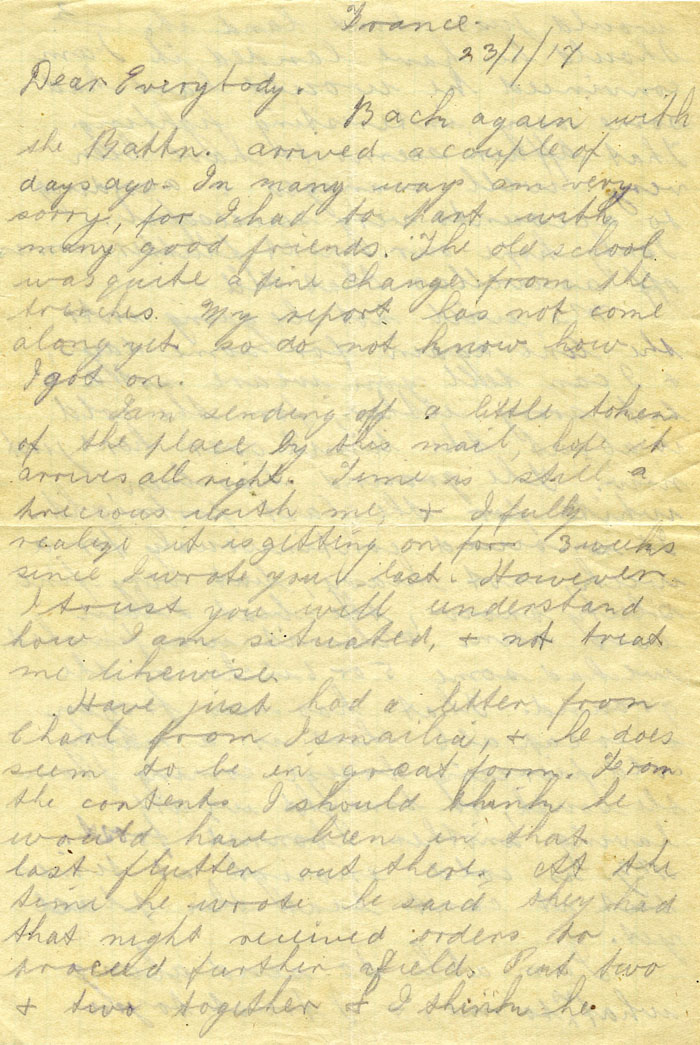 France.
23/1/17
Dear Everybody.
Back again with
the Battn. arrived a couple of
days ago. In many ways am very
sorry, for I had to part with
many good friends. The old school
was quite a fine change from the
trenches. My report has not come
along yet. so do not know how
I got on.
I am sending off a little token
of the place by this mail, hope it
arrives all right. Time is still a
precious with me, & I fully
realize it is getting on for 3 weeks
since I wrote you last. However
I trust you will understand
how I am situated, & not treat
me likewise.
Have just had a letter from
Charl from Ismailia, & he does
seem to be in great form. From
the contents I should think he
would have been in that
last flutter out there. At the
time he wrote he said they had
that night received orders to
proceed further afield. Put two
& two together & I think he